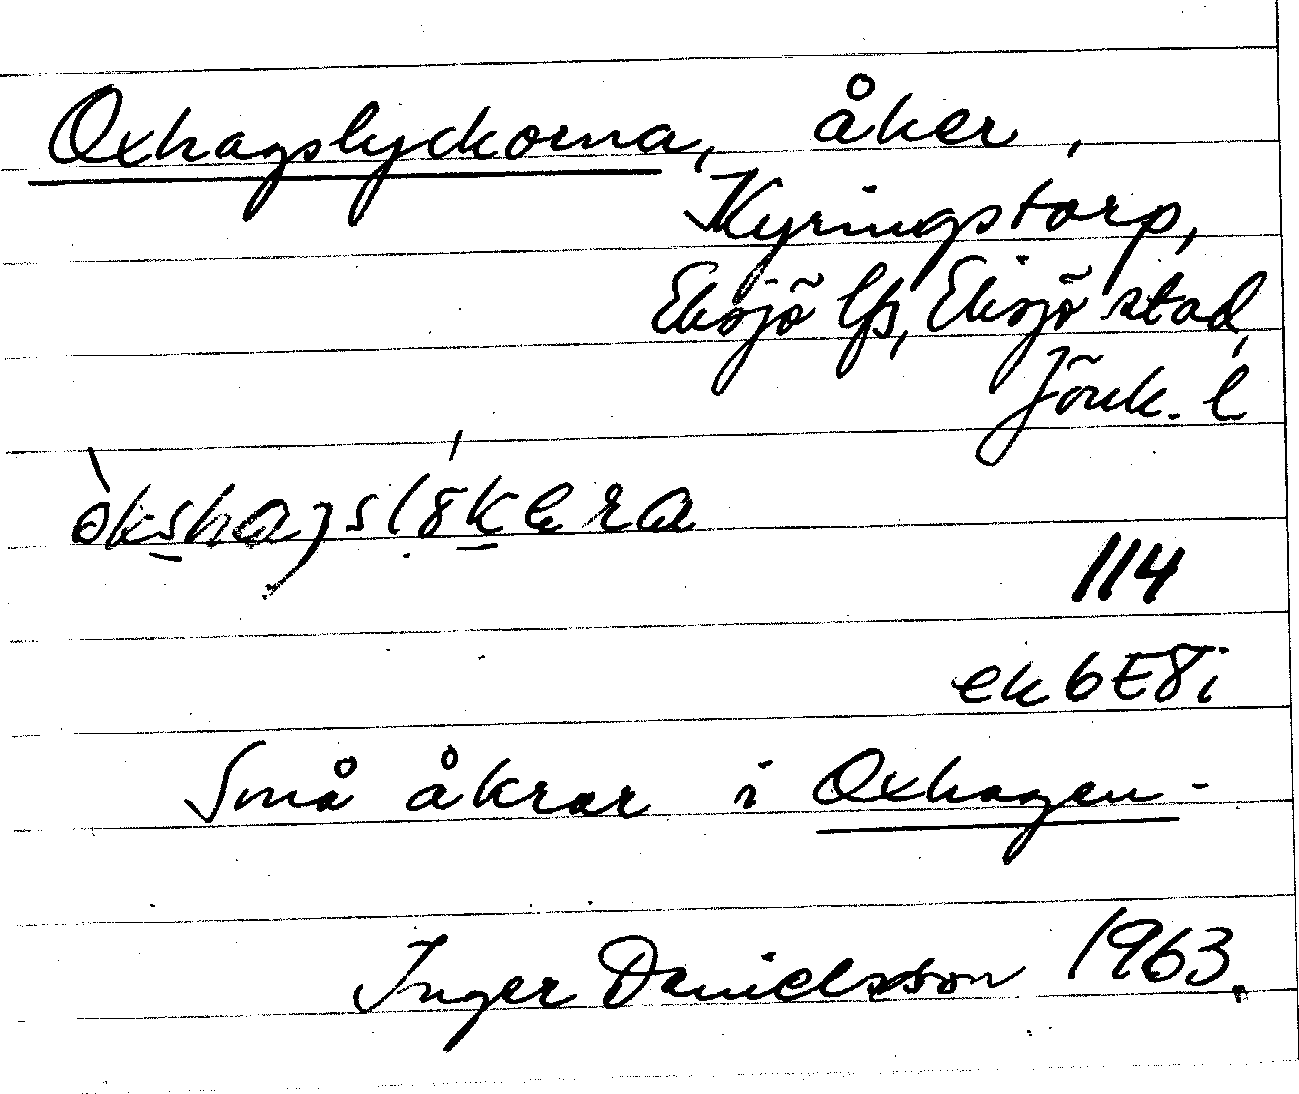 Oxhagslyckorna, åker,
Kyringstorp,
Eksjö lfs, Eksjö stad,
Jönk. l
114
ek 6E8i
Små åkrar i Oxhagen.
Inger Danielsson 1963.